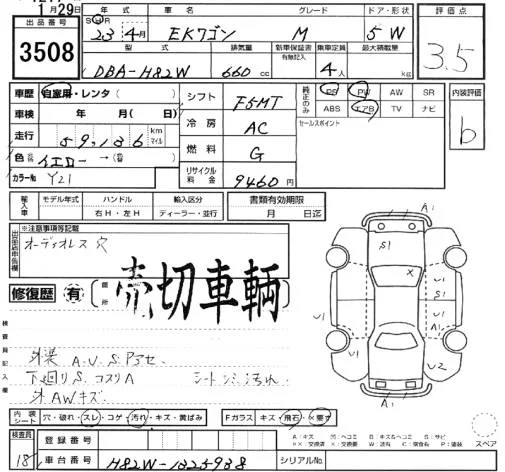 1月29日
出品番号
3508
年式 車名 グレード ドア・形状
23 4月 EKワゴン M 5W
型式 排気量 新車保証書 有無記入 乗車定員 最大積載量
DBA-H82W 660cc 4人 kg
評価点
3.5
車歴 自家用・レンタ( )
車検 年 月( 日)
走行 59,136 km マイル
色 イエロー→
カラーNo Y21
シフト F5MT
冷房 AC
燃料 G
リサイクル料金 9460円
純正のみ PS PW AW SR
ABS エアB TV ナビ
セールスポイント
内装評価
b
輸入車 モデル年式 ハンドル 輸入区分
右H・左H ディーラー・並行
書類有効期限
月 日迄
出品店申告欄
※注意事項等記載
オーディオレス 穴
修復歴 有 箇所
売切車輌
検査員記入欄
外装 A.U.S.Pアセ.
下廻りS コスリA シートシミ汚れ
外AWキズ.
A1
S1
X
U1
S1
U1
A1
U1
U1
U2
A1
内装シート 穴・破れ・スレ・コゲ・汚れ・キズ・黄ばみ
Fガラス キズ・飛石・
スペア
検査員
18
登録番号
車台番号 H82W-1325938
シリアルNo.